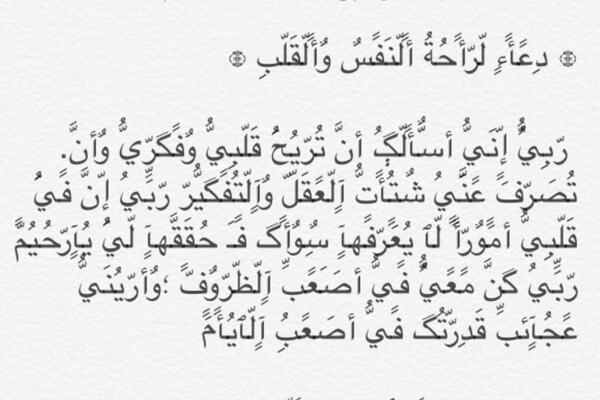 ۞ دِعًأًءٍ لّرّأًحُةُ ألّنَفًسٌ وٌألّقَلّبِ ۞
رّبِيُّ إنّيُّ أسٌّألّکْ أنَّ تُرّيُحُ قَلّبِيُّ وٌفًكرّيُّ وٌأنَّ.
تُصَرّفَ عًنّيُّ شُتُأتُّ آلّعًقَلّ وٌآلّتُفُكيُّرّ رّبِّيُّ إنَّ فًيُّ
قَلّبِيُّ أمًوٌرّأً لّآ يُعًرّفًهآ سٌوٌأک فَـ حُقَقَّهآ لّيُّ يُآرّحُيُمًّ
رّبِّيُّ كنَّ مًعًيُّ فًيُّ أصَعًبِّ آلّظّرّوٌفً ؛وٌأرّيُنَيُّ
عًجُآئبِّ قَدِرّتُک فًيُّ أصَعًبِ آلّآيُأمً